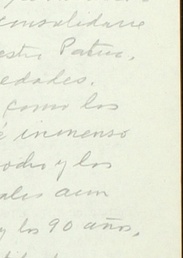 consolidarse
Patria,
edades.
como los
é inmenso
y los
ales aun
y los 90 años,